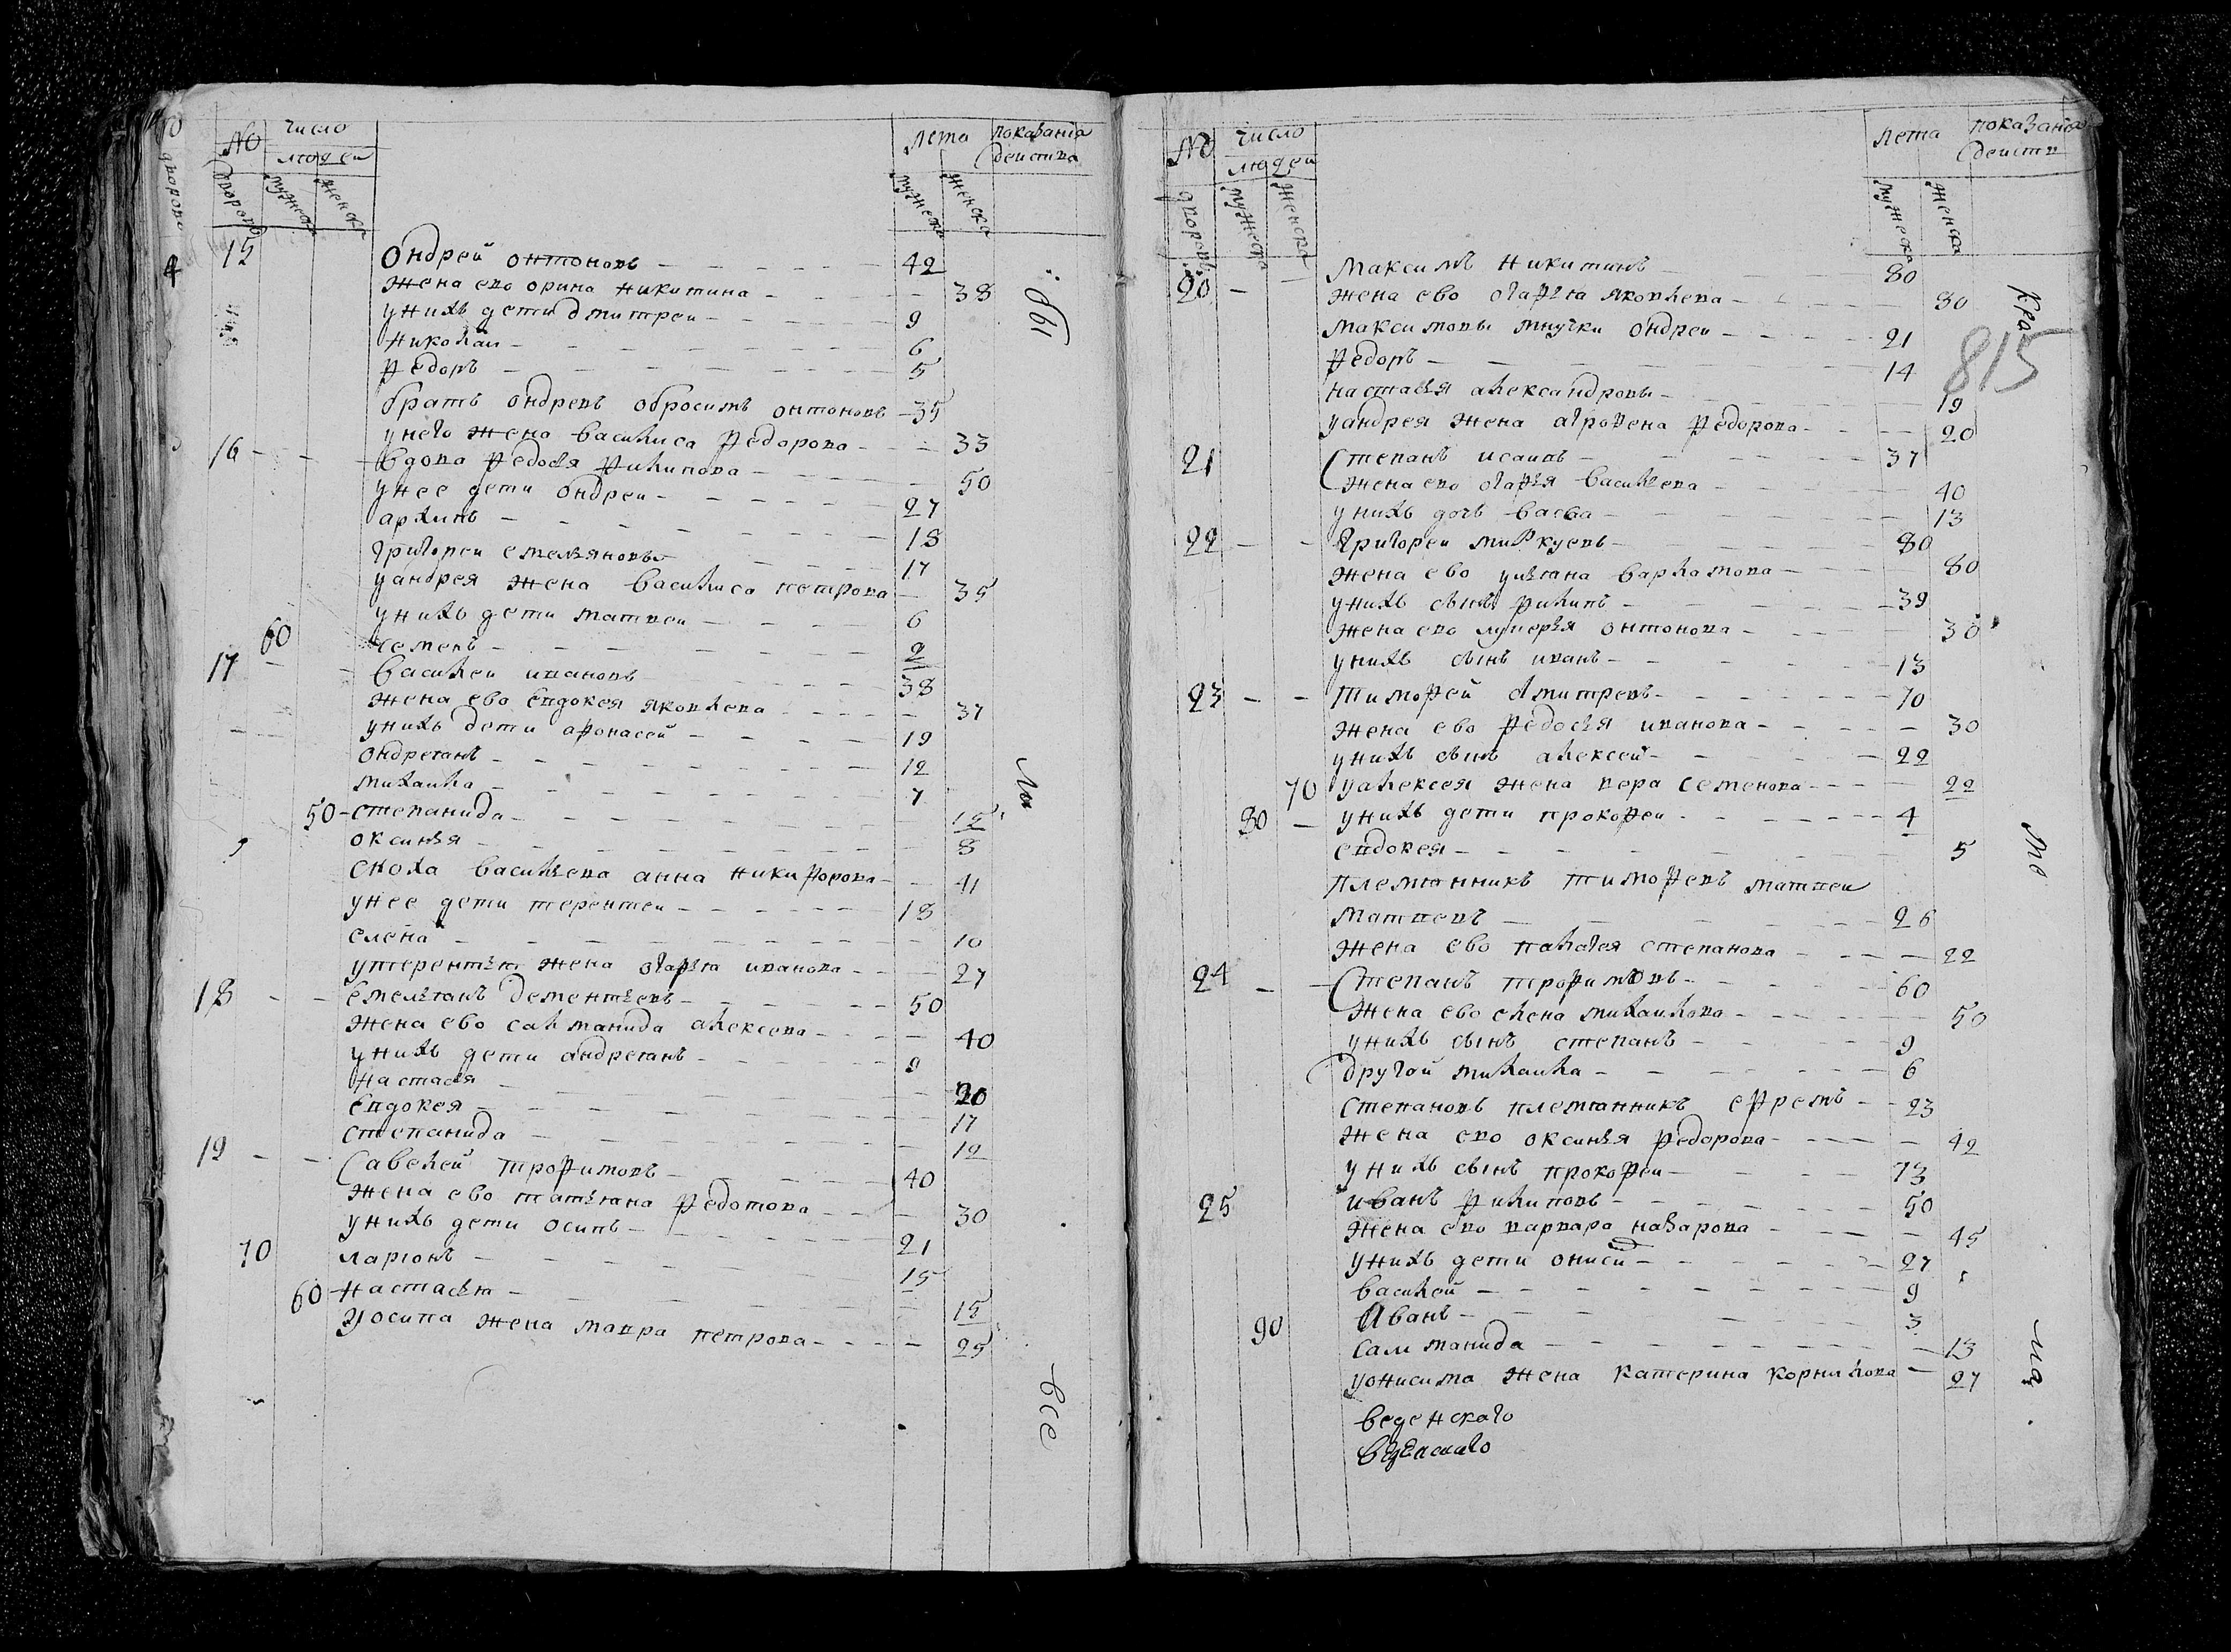 № число людей лета показания действа
дворовъ мужеска женска мужеска женска
15 Ондрей онтоновъ 42
жена ево орина никитина 38
у нихъ дети дмитреи 9
николаи 6
федоръ 5
братъ ондревъ обросимъ онтоновъ 35
у него жена василиса федорова 33
16 вдова федосья филипова 50
у нее дети ондреи 27
архипъ 18
григореи емельяновы 17
у андрея жена василиса петрова 35
у нихъ дети матвеи 6
60 семенъ 2
17 василеи ивановъ 38
жена ево евдокея яковлева 37
у нихъ дети афонасей 19
ондреянъ 12
михаила 7
50 степанида 12
оксинья 8
сноха васильева анна никифорова 41
у нее дети терентеи 18
елена 10
у терентья жена огафья иванова 27
18 емельянъ дементьевъ 50
жена ево салманида алексева 40
у нихъ дети андреянъ 9
настасья 20
евдокея 17
степанида 12
19 савелей трофимовъ 40
жена ево татьяна федотова 30
у нихъ дети осипъ 21
70 ларионъ 15
60 настасья 15
у осипа жена мавра петрова 25
все
№ число людей лета показания действ
дворовъ мужеска женска мужеска женска
815
20 максимъ никитинъ 80
жена ево огафья яковлева 80
максимовы внучки ондреи 21
федоръ 14
настасья александровы 19
у андрея жена агрофена федорова 20
21 степанъ исаивъ 37
жена ево огафья васильева 40
у нихъ дочь васса 13
22 григореи 80
жена ево ульяна варламова 80
у нихъ сынъ филипъ 39
жена ево лукерья онтонова 30
у нихъ сынъ иванъ 13
23 тимофей дмитревъ 70
жена ево федосья иванова 30
у нихъ сынъ алексей 22
70 у алексея жена вера семенова 22
80 у нихъ дети прокофеи 4
евдокея 5
племянникъ тимофевъ матвеи
матвевъ 26
жена ево палагея степанова 22
24 степанъ трофимовъ 60
жена ево елена михаилова 50
у нихъ сынъ степанъ 9
другой михаила 6
степановъ племянникъ ефремъ 23
жена ево оксинья федорова 42
у нихъ сынъ прокофеи 13
25 иванъ филиповъ 50
жена ево варвара назарова 45
у нихъ дети ониси 27
василей 9
90 иванъ 3
салманида 13
у онисима жена катерина корнилова 27
веденскаго